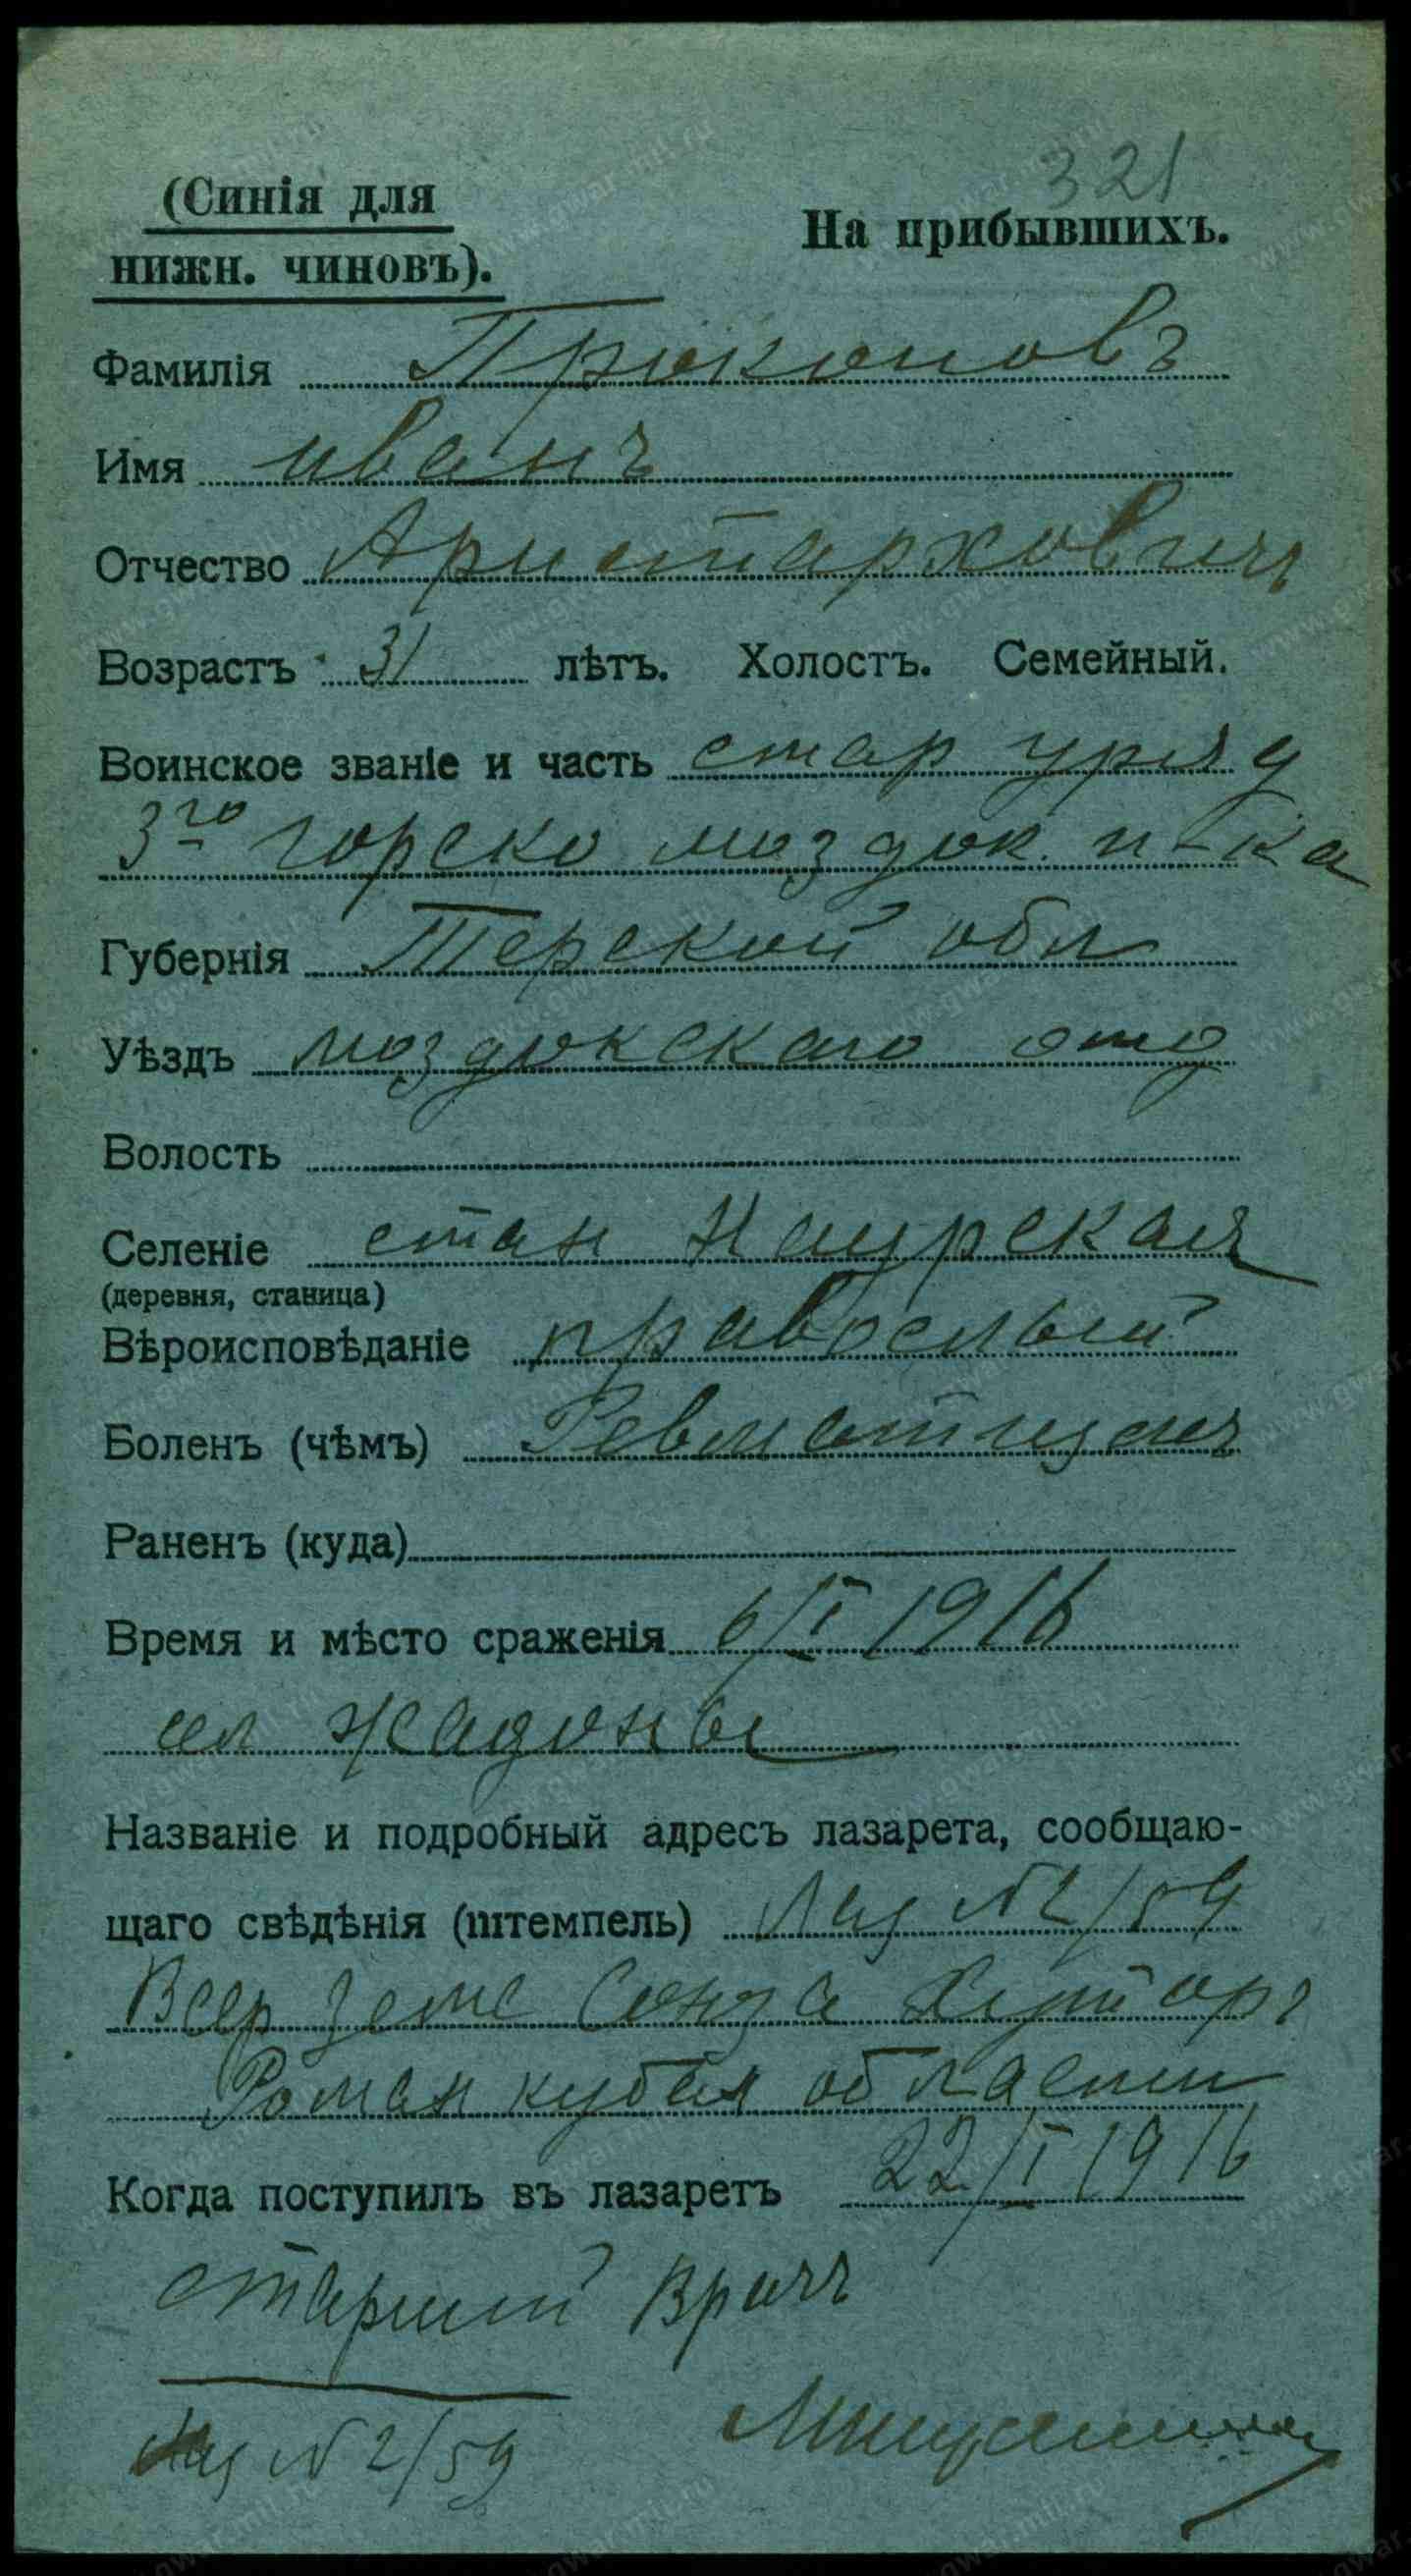 321
(Синія для
нижн. чиновъ).
На прибывшихъ.
Фамилія Проконовъ
Имя иванъ
Отчество Аристарховичъ
Возрастъ 31 лѣтъ. Холостъ. Семейный.
Воинское званіе и часть стар уряд
3го горско моздок. п-ка
Губернія Терской обл
Уѣздъ моздокскаго отд
Волость
Селеніе стан Наурская
(деревня, станица)
Вѣроисповѣданіе правослый
Боленъ (чѣмъ) Ревматизмъ
Раненъ (куда)
Время и мѣсто сраженія 6/I 1916
сел Жадоны
Названіе и подробный адресъ лазарета, сообщаю-
щаго свѣдѣнія (штемпель) Лаз № 2/59
Всер земс Союза Хутор
Роман кубан области
Когда поступилъ въ лазаретъ 22/I 1916
старший Врачъ
Лаз № 2/59